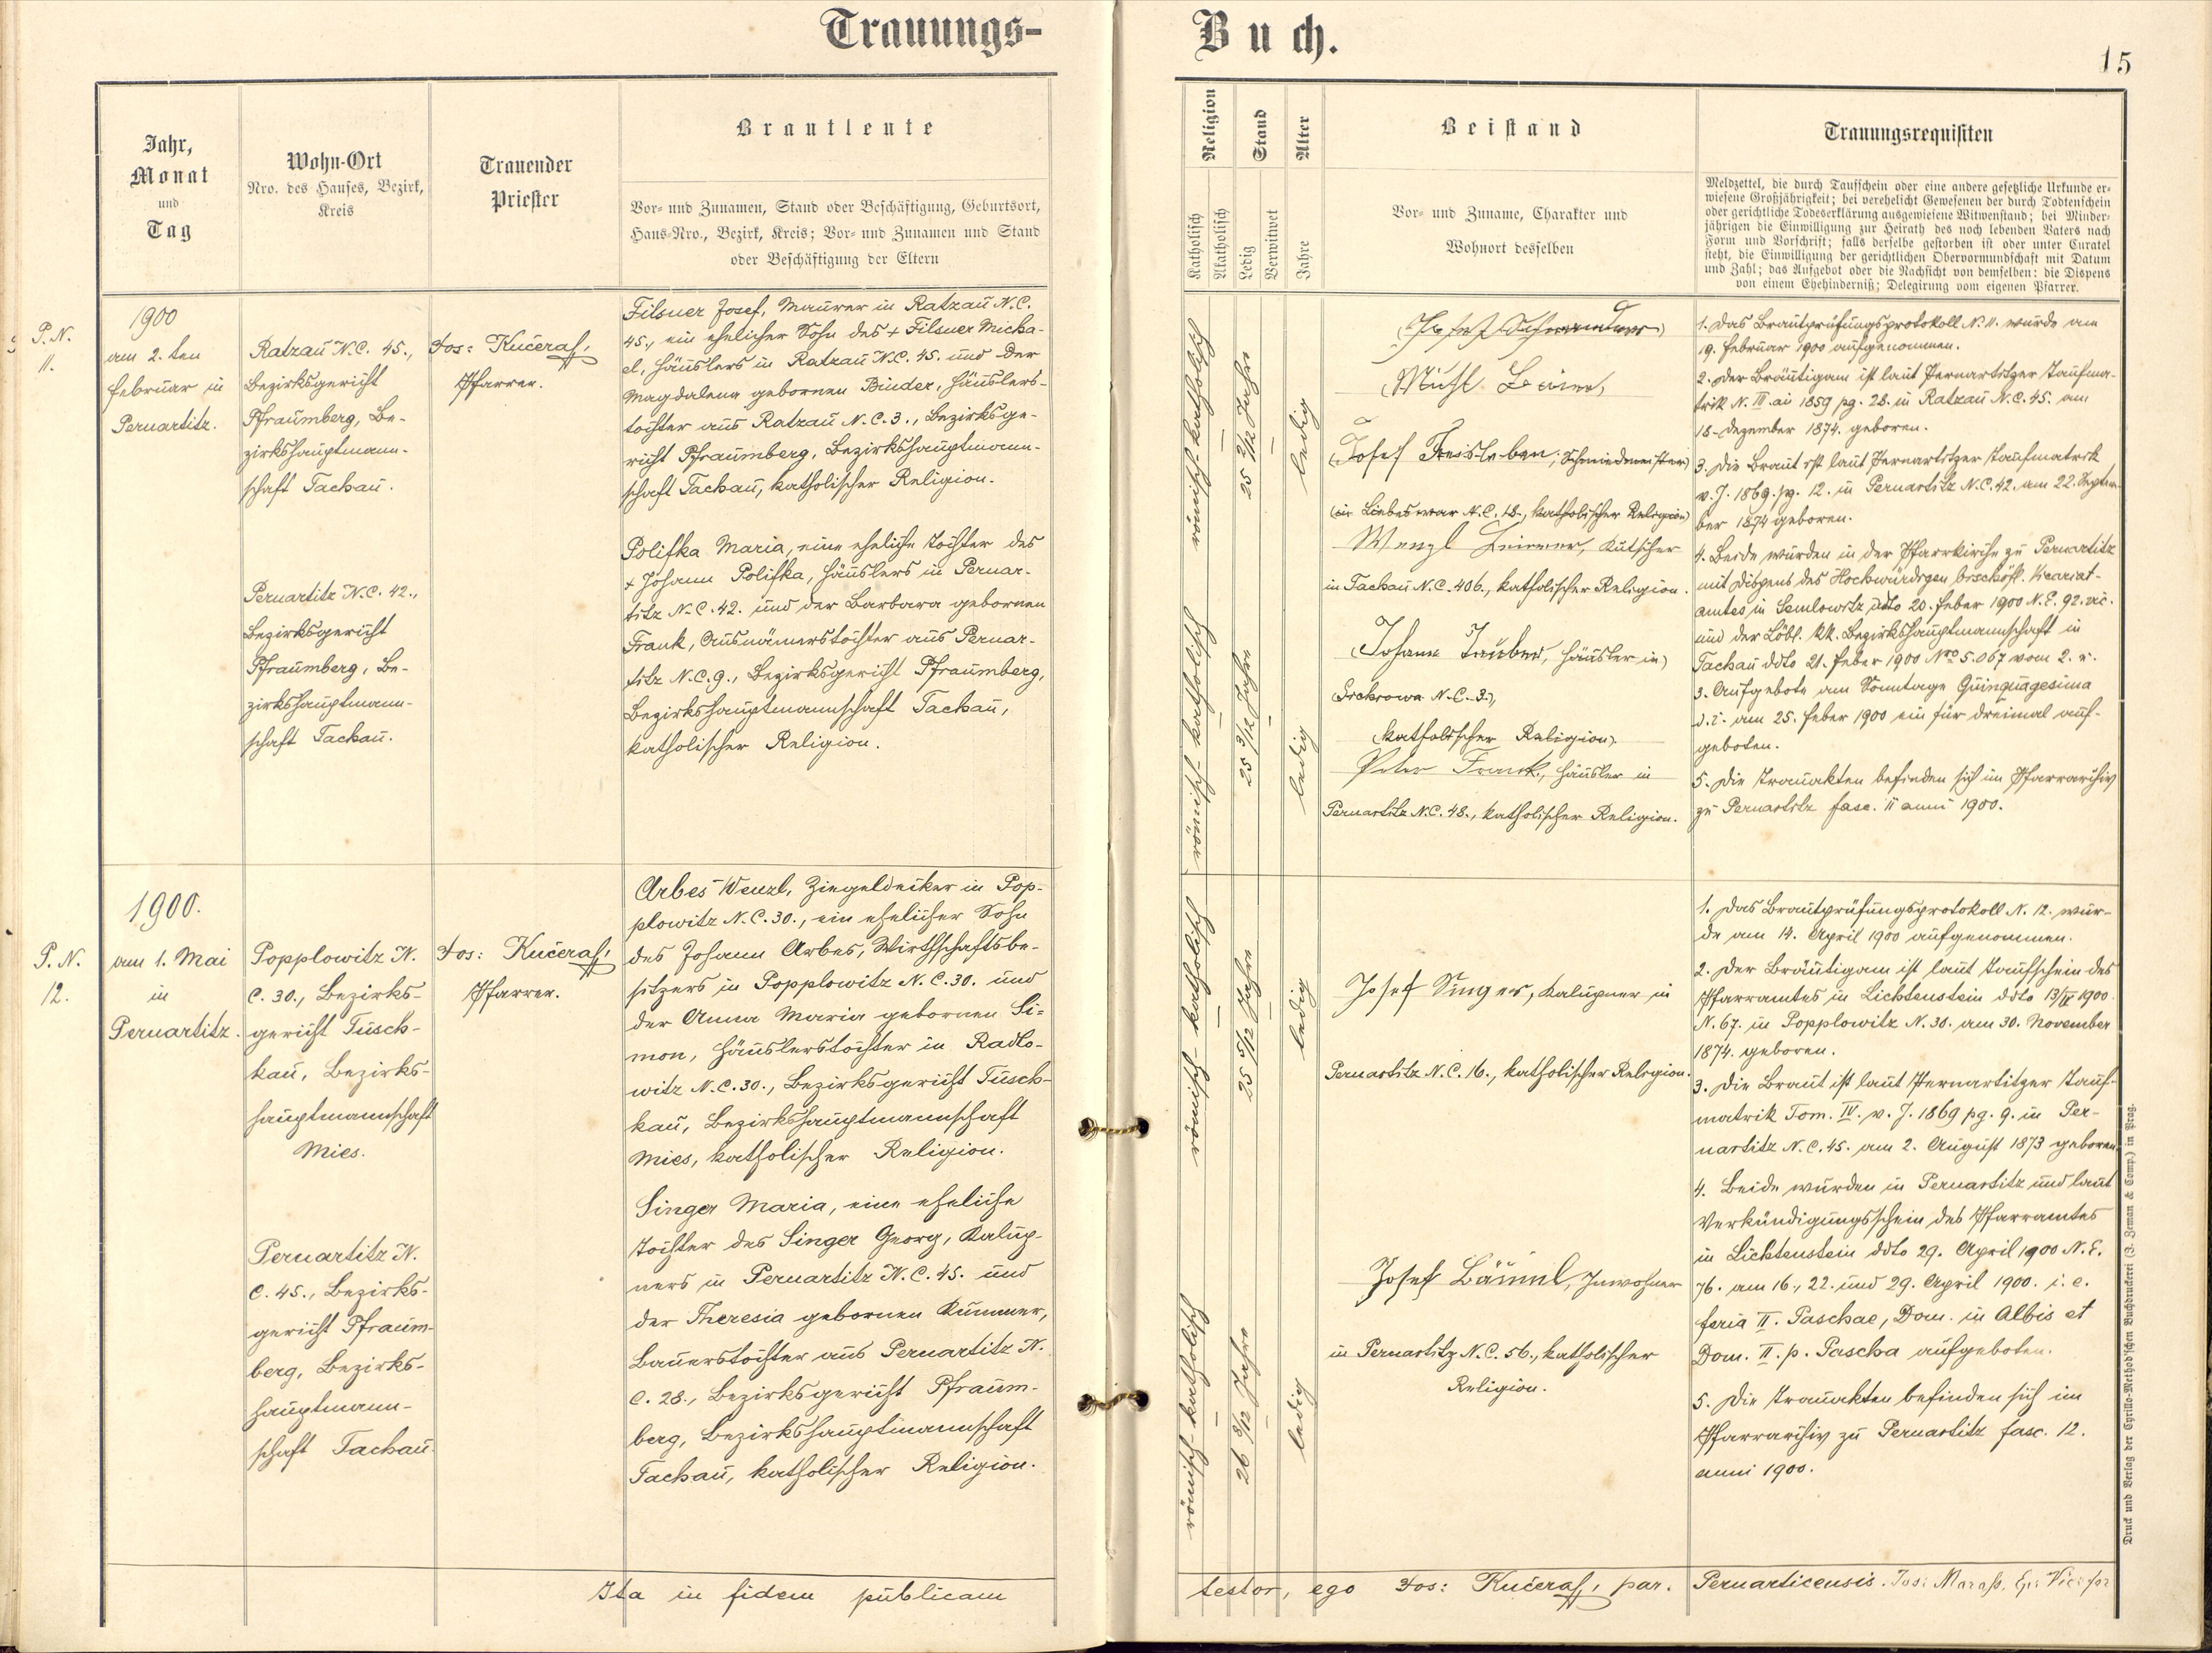 Trauungs-
Buch.
15
Jahr,
Monat
und
Tag
Wohn-Ort
Nro. des Hauses, Bezirk,
Kreis
Trauender
Priester
Brautleute
Vor- und Zunamen, Stand oder Beschäftigung, Geburtsort,
Haus-Nro., Bezirk, Kreis; Vor- und Zunamen und Stand
oder Beschäftigung der Eltern
Religion
Katholisch
Akatholisch
Stand
Ledig
Verwitwet
Alter
Jahre
Beistand
Vor- und Zuname, Charakter und
Wohnort desselben
Trauungsrequisiten
Meldzettel, die durch Taufschein oder eine andere gesetzliche Urkunde er-
wiesene Großjährigkeit; bei verehelicht Gewesenen der durch Todtenschein
oder gerichtliche Todeserklärung ausgewiesene Witwenstand; bei Minder-
jährigen die Einwilligung zur Heirath des noch lebenden Vaters nach
Form und Vorschrift; falls derselbe gestorben ist oder unter Curatel
steht, die Einwilligung der gerichtlichen Obervormundschaft mit Datum
und Zahl; das Aufgebot oder die Nachsicht von demselben: die Dispens
von einem Ehehinderniß; Delegirung vom eigenen Pfarrer.
P. N.
11.
1900
am 2. ten
Februar in
Pernartitz.
Ratzau N.C. 45.,
Bezirksgericht
Pfraumberg, Be-
zirkshauptmann-
schaft Tachau.
Pernartitz N.C. 42.,
Bezirksgericht
Pfraumberg, Be-
zirkshauptmann-
schaft Tachau.
Jos: Kučeraß,
Pfarrer.
Filsner Josef, Maurer in Ratzau N.C.
45., ein ehelicher Sohn des + Filsner Micha-
el, Häuslers in Ratzau N.C. 45. und der
Magdalena gebornen Binder, Häuslers-
tochter aus Ratzau N.C. 3., Bezirksge-
richt Pfraumberg, Bezirkshauptmann-
schaft Tachau, katholischer Religion.
Polifka Maria, eine eheliche Tochter des
+ Johann Polifka, Häuslers in Pernar-
titz N.C. 42. und der Barbara gebornen
Frank, Ausnämerstochter aus Pernar-
titz N.C. 9., Bezirksgericht Pfraumberg,
Bezirkshauptmannschaft Tachau,
katholischer Religion.
römisch-katholisch
25 2/12 Jahre
ledig
römisch-katholisch
25 5/12 Jahre
ledig
Josef Freisleben, Schmiedmeister)
(in Liebeswar N.C. 18., katholischer Religion)
Wenzl, Kutscher
in Tachau N.C. 406., katholischer Religion.
(Johann Tauber, Häusler in)
N.C. 3.),
(katholischer Religion).
Peter Frank, Häusler in
Pernartitz N.C. 48., katholischer Religion.
1. Das Brautprüfungsprotokoll N. 11. wurde am
19. Februar 1900 aufgenommen.
2. Der Bräutigam ist laut Pernartitzer Taufma-
trik N. III. ai 1859 pg. 28. in Ratzau N.C. 45. am
18. Dezember 1874. geboren.
3. Die Braut ist laut Pernartitzer Taufmatrik
v. J. 1869. pg. 12. in Pernartitz N.C. 42. am 22. Septem-
ber 1874 geboren.
4. Beide wurden in der Pfarrkirche zu Pernartitz
mit Dispens des Hochwürdigen bischöfl. Vicariat-
amtes in Semlowitz ddto 20. Feber 1900 N.E. 92. vic.
und der Löbl. kk. Bezirkshauptmannschaft in
Tachau ddto 21. Feber 1900 Nro 5.067 vom 2. u.
3. Aufgebote am Sonntage Quinquagesima
d. i. am 25. Feber 1900 ein für dreimal auf-
geboten.
5. Die Trauakten befinden sich im Pfarrarchiv
zu Pernartitz fasc. 11 anni 1900.
P. N.
12.
1900.
am 1. Mai
in
Pernartitz.
Popplowitz N.
C. 30., Bezirks-
gericht Tusch-
kau, Bezirks-
hauptmannschaft
Mies.
Pernartitz N.
C. 45., Bezirks-
gericht Pfraum-
berg, Bezirks-
hauptmann-
schaft Tachau.
Jos: Kučeraß,
Pfarrer.
Arbes Wenzl, Ziegeldecker in Pop-
plowitz N.C. 30., ein ehelicher Sohn
des Johann Arbes, Wirthschaftsbe-
sitzers in Popplowitz N.C. 30. und
der Anna Maria gebornen Si=
mon, Häuslerstochter in Radlo-
witz N.C. 30., Bezirksgericht Tusch-
kau, Bezirkshauptmannschaft
Mies, katholischer Religion.
Singer Maria, eine eheliche
Tochter des Singer Georg, Kalup-
ners in Pernartitz N.C. 45. und
der Theresia gebornen Kummer,
Bauerstochter aus Pernartitz N.
C. 28., Bezirksgericht Pfraum-
berg, Bezirkshauptmannschaft
Tachau, katholischer Religion.
römisch-katholisch
25 5/12 Jahre
ledig
römisch-katholisch
26 8/12 Jahre
ledig
Josef Singer, Kalupner in
Pernartitz N.C. 16., katholischer Religion.
Josef Bäuml, Inwohner
in Pernartitz N.C. 56., katholischer
Religion.
1. Das Brautprüfungsprotokoll N. 12. wur-
de am 14. April 1900 aufgenommen.
2. Der Bräutigam ist laut Taufschein des
Pfarramtes in Lichtenstein ddto 13/IV 1900
N. 67. in Popplowitz N. 30. am 30. November
1874. geboren.
3. Die Braut ist laut Pernartitzer Tauf-
matrik Tom. IV. v. J. 1869 pg. 9. in Per-
nartitz N.C. 45. am 2. August 1873 geboren.
4. Beide wurden in Pernartitz und laut
Verkündigungsschein des Pfarramtes
in Lichtenstein ddto 29. April 1900 N.E.
76. am 16., 22. und 29. April 1900. i. e.
feria II. Paschae, Dom. in Albis et
Dom. II. p. Pascha aufgeboten.
5. Die Trauakten befinden sich im
Pfarrarchiv zu Pernartitz fasc. 12.
anni 1900.
Ita in fidem publicam
testor, ego Jos: Kučeraß, par. Pernarticensis. Jos: Maraß,
Druck und Verlag der Cyrillo-Method'schen Buchdruckerei (J. Zeman & Comp.) in Prag.